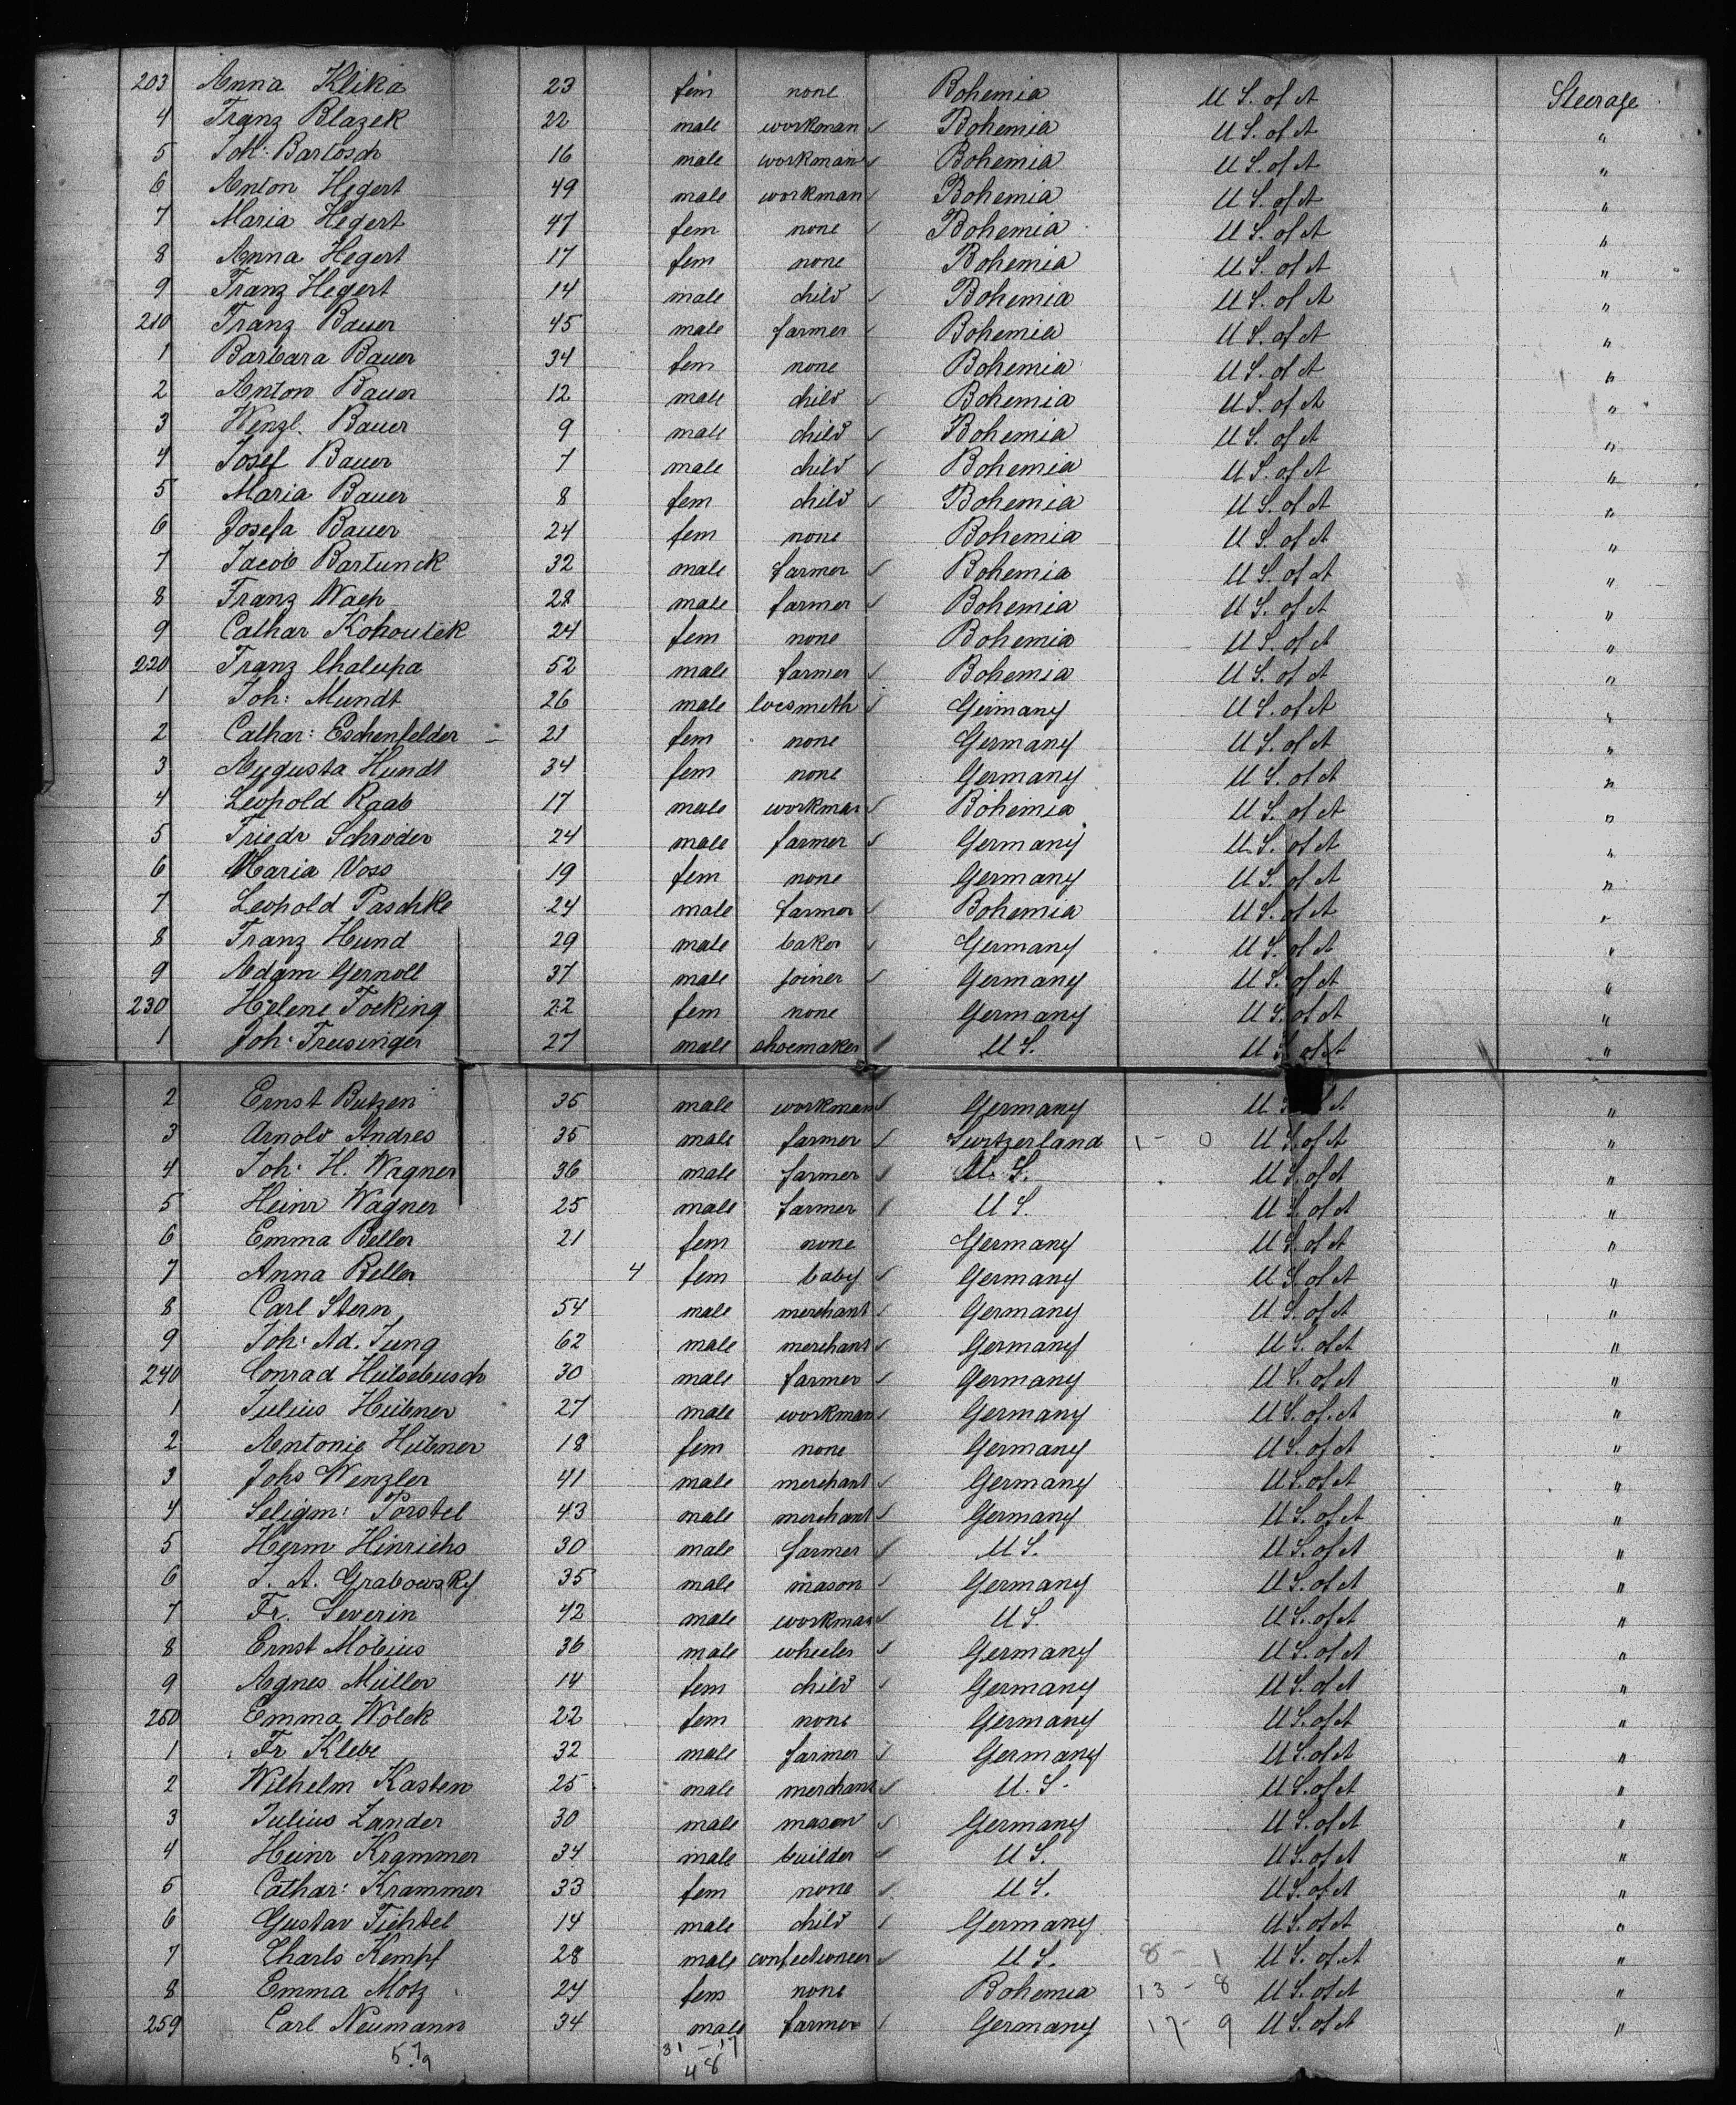 203 Anna Klika 23 fem none Bohemia U S. of A Steerage
4 Franz Blazek 22 male workman Bohemia U S. of A "
5 Joh: Bartosch 16 male workman Bohemia U S. of A "
6 Anton Hegert 49 male workman Bohemia U S. of A "
7 Maria Hegert 47 fem none Bohemia U S. of A "
8 Anna Hegert 17 fem none Bohemia U S. of A "
9 Franz Hegert 14 male child Bohemia U S. of A "
210 Franz Bauer 45 male farmer Bohemia U S. of A "
1 Barbara Bauer 34 fem none Bohemia U S. of A "
2 Anton Bauer 12 male child Bohemia U S. of A "
3 Wenzl. Bauer 9 male child Bohemia U S. of A "
4 Josef Bauer 7 male child Bohemia U S. of A "
5 Maria Bauer 8 fem child Bohemia U S. of A "
6 Josefa Bauer 24 fem none Bohemia U S. of A "
7 Jacob Bartunek 32 male farmer Bohemia U S. of A "
8 Franz 28 male farmer Bohemia U S. of A "
9 Cathar Kohoutek 24 fem none Bohemia U S. of A "
220 Franz Chalupa 52 male farmer Bohemia U S. of A "
1 Joh: Mundt 26 male locsmeth Germany U S. of A "
2 Cathar: Eschenfelder 21 fem none Germany U S. of A "
3 Augusta Hundt 34 fem none Germany U S. of A "
4 Leopold Raab 17 male workman Bohemia U S. of A "
5 Friedr Schroder 24 male farmer Germany U S. of A "
6 Maria Voss 19 fem none Germany U S. of A "
7 Leopold Paschke 24 male farmer Bohemia U S. of A "
8 Franz Hund 29 male baker Germany U S. of A "
9 Adam Gernoll 37 male joiner Germany U S. of A "
230 Helene Focking 22 fem none Germany U S. of A "
1 Joh: Freisinger 27 male shoemaker U S. U S. of A "
2 Ernst Butzen 35 male workman Germany U S. of A "
3 Arnold Andres 35 male farmer Switzerland 1 - 0 U S. of A "
4 Joh: H. Wagner 36 male farmer U. S. U S. of A "
5 Heinr Wagner 25 male farmer U S. U S. of A "
6 Emma Beller 21 fem none Germany U S. of A "
7 Anna Beller 4 fem baby Germany U S. of A "
8 Carl Stern 54 male merchant Germany U S. of A "
9 Joh: Ad. Jung 62 male merchant Germany U S. of A "
240 Conrad Hülsebusch 30 male farmer Germany U S. of A "
1 Julius Hübner 27 male workman Germany U S. of A "
2 Antonie Hübner 18 fem none Germany U S. of A "
3 Johs Wenzler 41 male merchant Germany U S. of A "
4 Seligm: Porstel 43 male merchant Germany U S. of A "
5 Herm Hinrichs 30 male farmer U S. U S. of A "
6 J. A. Grabowsky 35 male mason Germany U S. of A "
7 Fr. Severin 42 male workman U S. U S. of A "
8 Ernst Mobius 36 male wheeler Germany U S. of A "
9 Agnes Müller 14 fem child Germany U S. of A "
250 Emma Wölck 22 fem none Germany U S. of A "
1 Fr Klebe 32 male farmer Germany U S. of A "
2 Wilhelm Kasten 25 male merchant U. S. U S. of A "
3 Julius Zander 30 male mason Germany U S. of A "
4 Heinr Krammer 34 male builder U S. U S. of A "
5 Cathar: Krammer 33 fem none U S. U S. of A "
6 Gustav Fichtel 14 male child Germany U S. of A "
7 Charls Kempf 28 male confectioneer U S. 8 - 1 U S. of A "
8 Emma Motz 24 fem none Bohemia 13 - 8 U S. of A "
259 Carl Neumann 34 male farmer Germany 17 - 9 U S. of A "
31 - 17
48